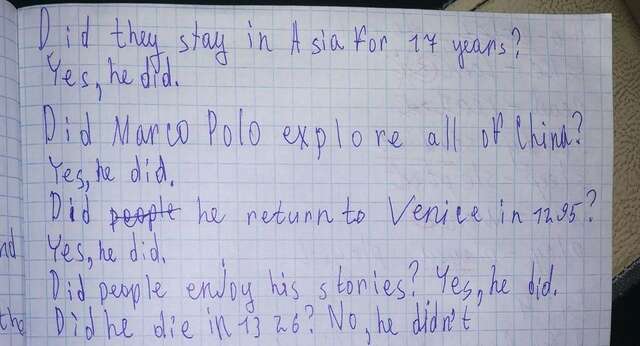 Did they stay in Asia for 17 years?
Yes, he did.
Did Marco Polo explore all of China?
Yes, he did.
Did people he return to Venice in 1295?
nd Yes, he did.
Did people enjoy his stories? Yes, he did.
the Did he die in 1326? No, he didn't